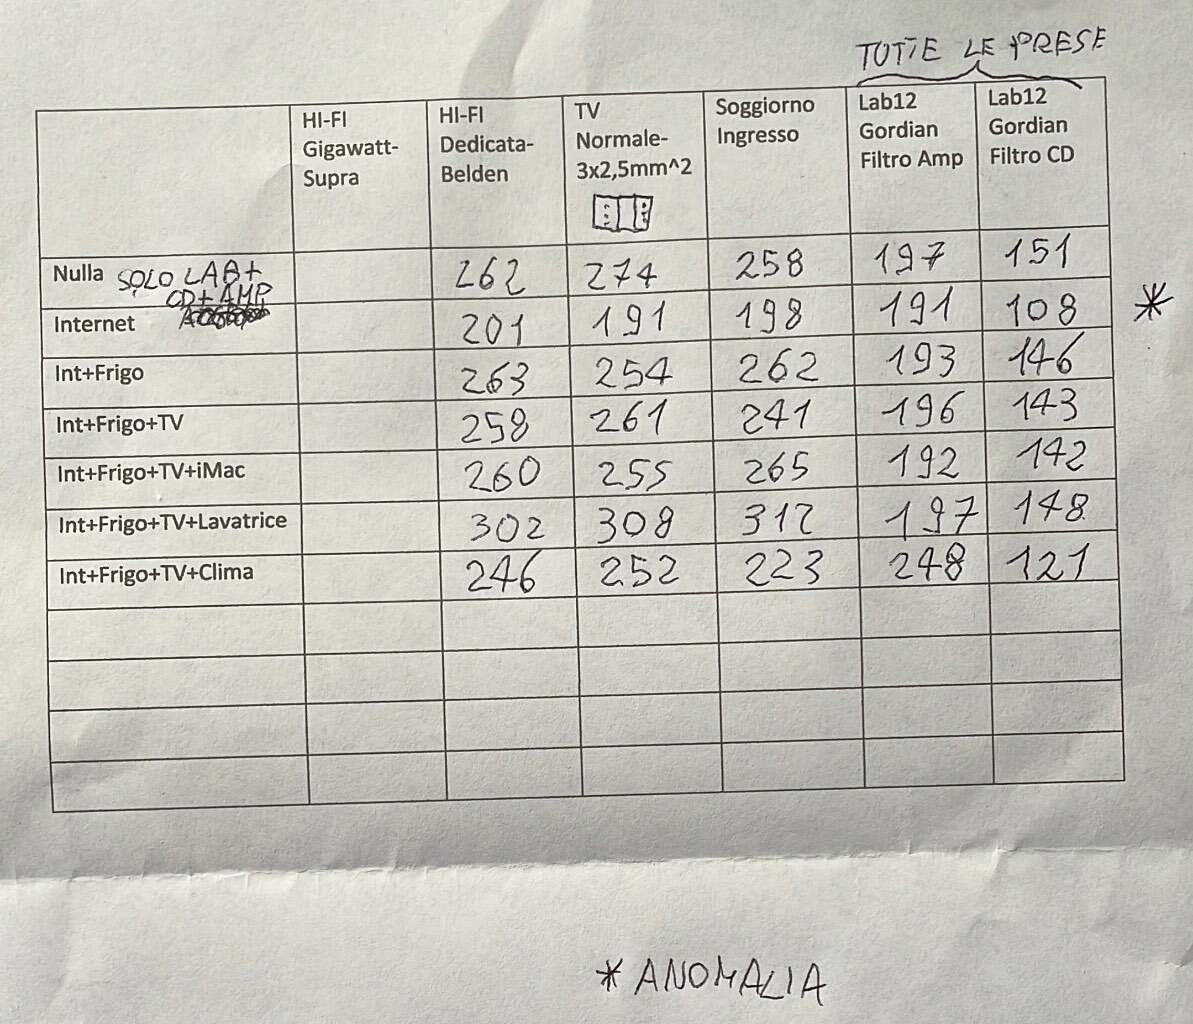 TUTTE LE PRESE
HI-FI Gigawatt-Supra
HI-FI Dedicata-Belden
TV Normale-3x2,5mm^2
Soggiorno Ingresso
Lab12 Gordian Filtro Amp
Lab12 Gordian Filtro CD
Nulla SOLO LAB+ CD+AMP 262 274 258 197 151
Internet 201 191 198 191 108 *
Int+Frigo 263 254 262 193 146
Int+Frigo+TV 258 261 241 196 143
Int+Frigo+TV+iMac 260 255 265 192 142
Int+Frigo+TV+Lavatrice 302 308 312 197 148
Int+Frigo+TV+Clima 246 252 223 248 121
* ANOMALIA